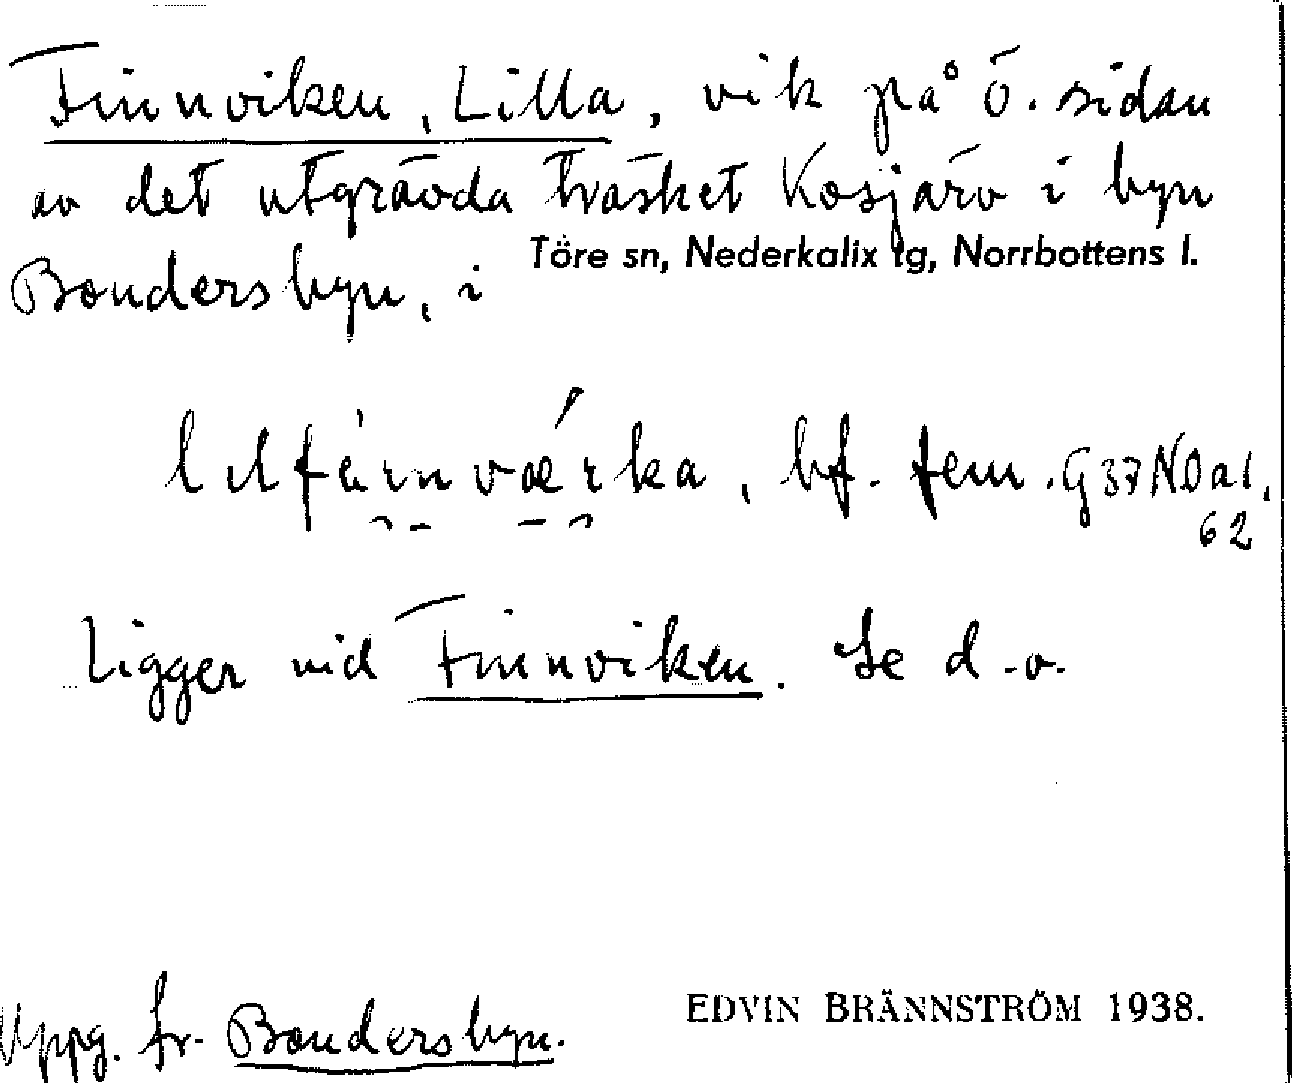 Finnviken, Lilla, vik på ö. sidan
av det utgrävda träsket Kosjärv i byn
Töre sn, Nederkalix tg, Norrbottens l.
Bondersbyn, i
bf. fem. G 37 NO a1,
62
Ligger vid Finnviken. Se d. o.
EDVIN BRÄNNSTRÖM 1938.
Uppg. fr. Bondersbyn.